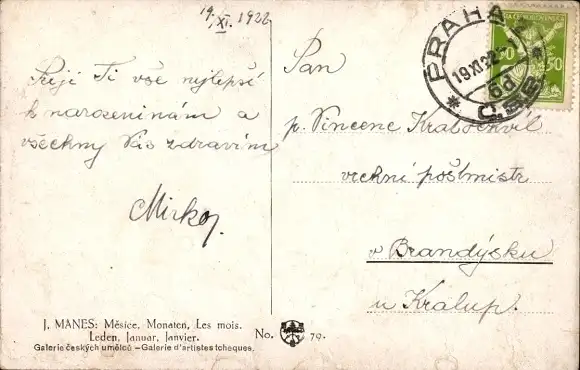 19/XI. 1922
Přeji Ti vše nejlepší
k narozeninám a
všechny Vás zdravím
Mirko
Pan
p. Vincenc Kratochvíl
vrchní poštmistr
v Brandýsku
u Kralup.
PRAHA
19 XI 22
6d
ČSR
50 50
J. MÁNES: Měsíce, Monaten, Les mois.
Leden, Januar, Janvier.
Galerie českých umělců – Galerie d'artistes tcheques.
No. 79.